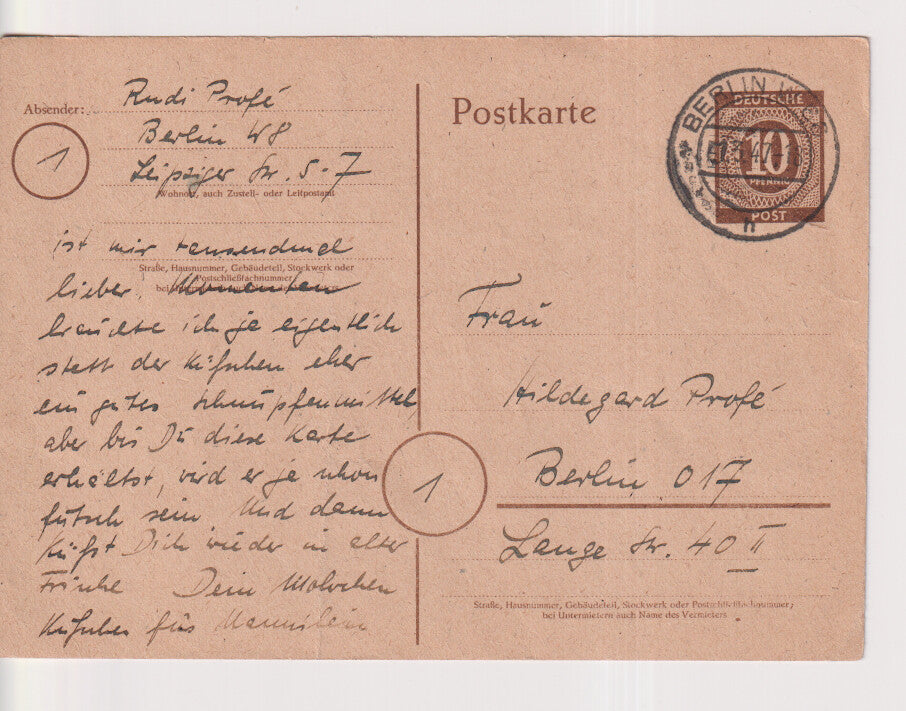 Absender: Rudi Profé
Berlin W8
Leipziger Str. 5-7
Wohnort, auch Zustell- oder Leitpostamt
1
ist mir tausendmal
Straße, Hausnummer, Gebäudeteil, Stockwerk oder
Postschließfachnummer
lieber. Momentan
brauchte ich ja eigentlich
statt der Küßchen eher
ein gutes Schnupfenmittel,
aber bis Du diese Karte
erhältst, wird er ja schon
futsch sein. Und dann
küßt Dich wieder in alter
Frische Dein
Küßchen für
Postkarte
BERLIN W
47
h
DEUTSCHE
10
PFENNIG
POST
Frau
Hildegard Profé
1
Berlin O 17
Lange Str. 40 II
Straße, Hausnummer, Gebäudeteil, Stockwerk oder Postschließfachnummer;
bei Untermietern auch Name des Vermieters